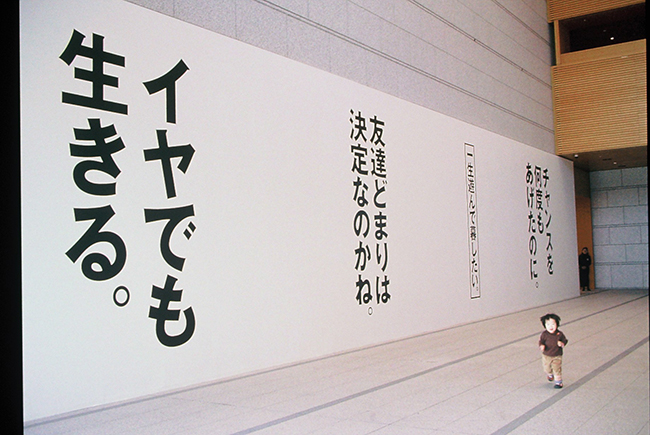 チャンスを
何度も
あげたのに。
一生遊んで暮したい。
友達どまりは
決定なのかね。
イヤでも
生きる。